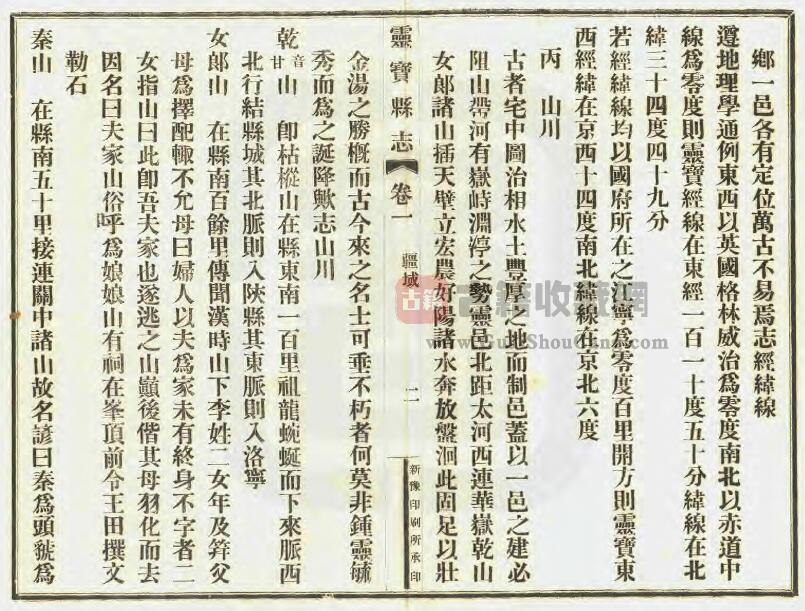 鄉一邑各有定位萬古不易焉志經緯線
遵地理學通例東西以英國格林威治爲零度南北以赤道中
線爲零度則靈寶經線在東經一百一十度五十分緯線在北
緯三十四度四十九分
若經緯線均以國府所在之江寧爲零度百里開方則靈寶東
西經緯在京西十四度南北緯線在京北六度
丙　山川
古者宅中圖治相水土豐厚之地而制邑蓋以一邑之建必
阻山帶河有嶽峙淵渟之勢靈邑北距太河西連華嶽乾山
女郞諸山插天壁立宏農好陽諸水奔放盤洄此固足以壯
靈寶縣志　卷一　疆域　二　新豫印刷所承印
金湯之勝槪而古今來之名士可垂不朽者何莫非鍾靈毓
秀而爲之誕降歟志山川
乾音甘山　卽枯樅山在縣東南一百里祖龍蜿蜒而下來脈西
北行結縣城其北脈則入陝縣其東脈則入洛寧
女郞山　在縣南百餘里傳聞漢時山下李姓二女年及笄父
母爲擇配輒不允母曰婦人以夫爲家未有終身不字者二
女指山曰此卽吾夫家也遂逃之山巔後偕其母羽化而去
因名曰夫家山俗呼爲娘娘山有祠在峯頂前令王田撰文
勒石
秦山　在縣南五十里接連關中諸山故名諺曰秦爲頭虢爲
古籍
古籍收藏網
www.GuJiShouCang.com